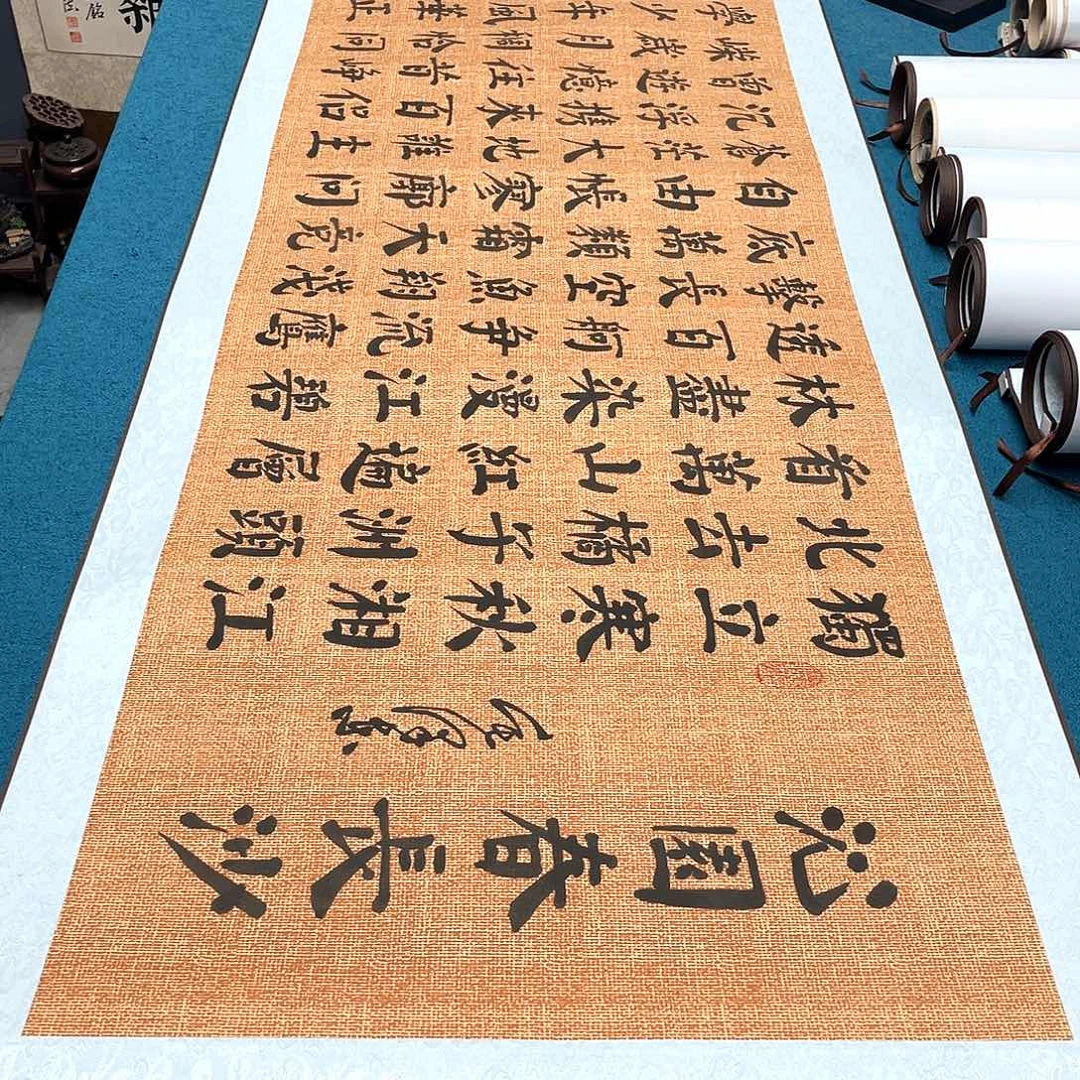 沁園春長沙
毛澤东
獨立寒秋湘江
北去橘子洲頭
看萬山紅遍層
林盡染漫江碧
透百舸争流鷹
擊長空魚翔淺
底萬類霜天竞
自由悵寥廓问
蒼茫大地誰主
沉浮携来百侣
曾遊憶往昔峥
嶸歲月稠恰同
學少年風華正